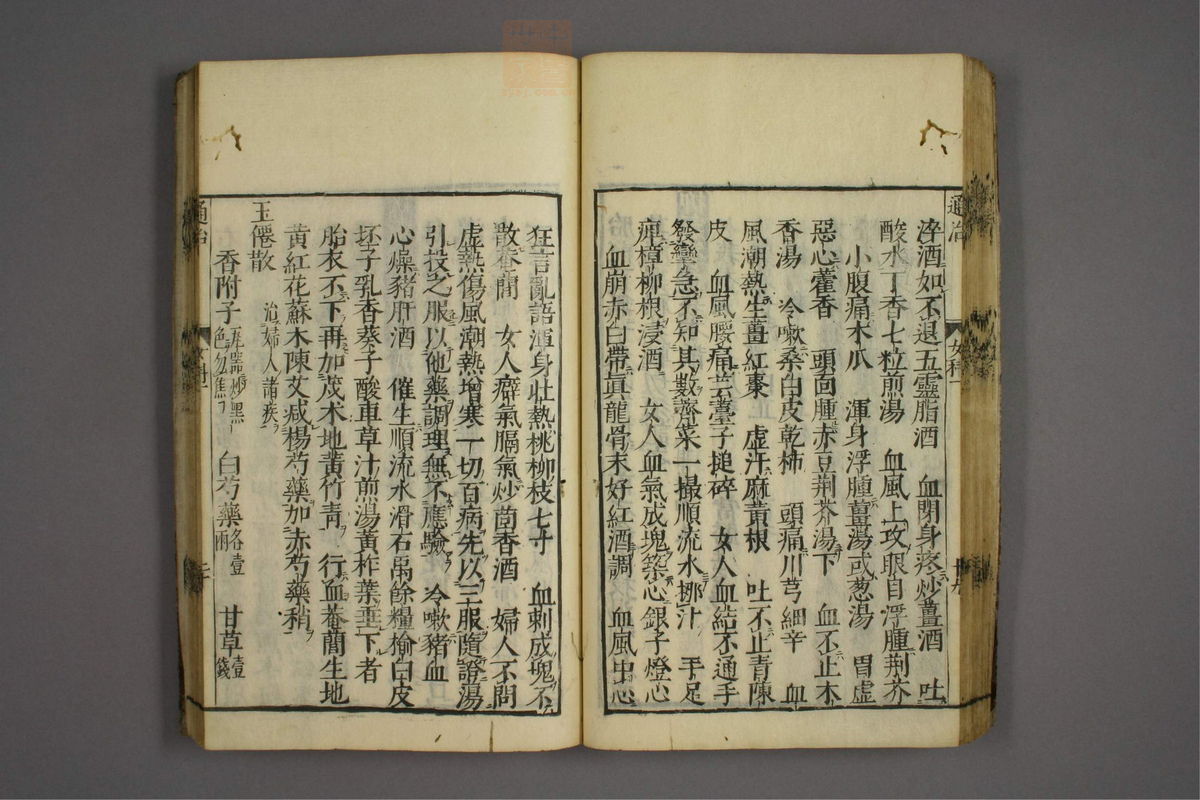 通治
女科一
十九
淬酒如不退五靈脂酒 血閉身疼炒薑酒 吐
酸水丁香七粒煎湯 血風上攻眼目浮腫荆芥
小腹痛木瓜 渾身浮腫薑湯或葱湯 胃虛
惡心藿香 頭面腫赤豆荆芥湯下 血不止木
香湯 冷嗽桑白皮乾柿 頭痛川芎細辛 血
風潮熱生薑紅棗 虛汗麻黃根 吐不止青陳
皮 血風腰痛芸薹子搥碎 女人血結不通手
發攣急不知其數薺菜一撮順流水挪汁 手足
瘅樟柳根浸酒 女人血氣成塊築心銀子燈心
血崩赤白帶真龍骨末好紅酒調 血風虫心
狂言亂語渾身壮熱桃柳枝七寸 血刺成塊不
散菴䕡 女人癖氣膈氣炒茴香酒 婦人不問
虛熱傷風潮熱增寒一切百病先以三服隨證湯
引投之服以他藥調理無不應驗 冷嗽豬血
心燥豬肝酒 催生順流水滑石禹餘糧榆白皮
坯子乳香葵子酸車草汁煎湯黃柞葉垂下者
胎衣不下再加茂术地黃竹青 行血菴䕡生地
黃紅花蘇木陳艾减楊芍藥加赤芍藥稍
玉僊散 治婦人諸疾
香附子 瓦器炒黑色勿焦了 白芍藥各壹兩 甘草壹錢
通治
女科一
二十